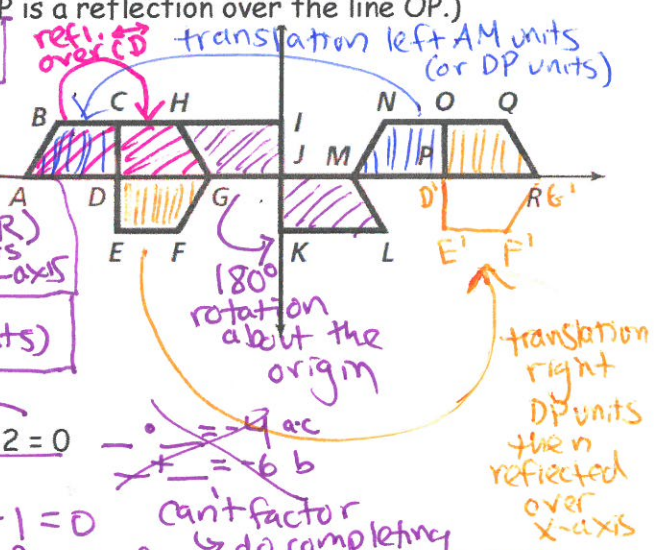 P is a reflection over the line OP.)
refl. over CD
translation left AM units
(or DP units)
B C H I N O Q
J M P
A D G D' R G'
E F K L E' F'
R)
s
-axis
ts)
180°
rotation
about the
origin
translation
right
DP units
then
reflected
over
x-axis
2 = 0
_ · _ = -4 a·c
_ + _ = -6 b
-1 = 0
can't factor
↳ do completing